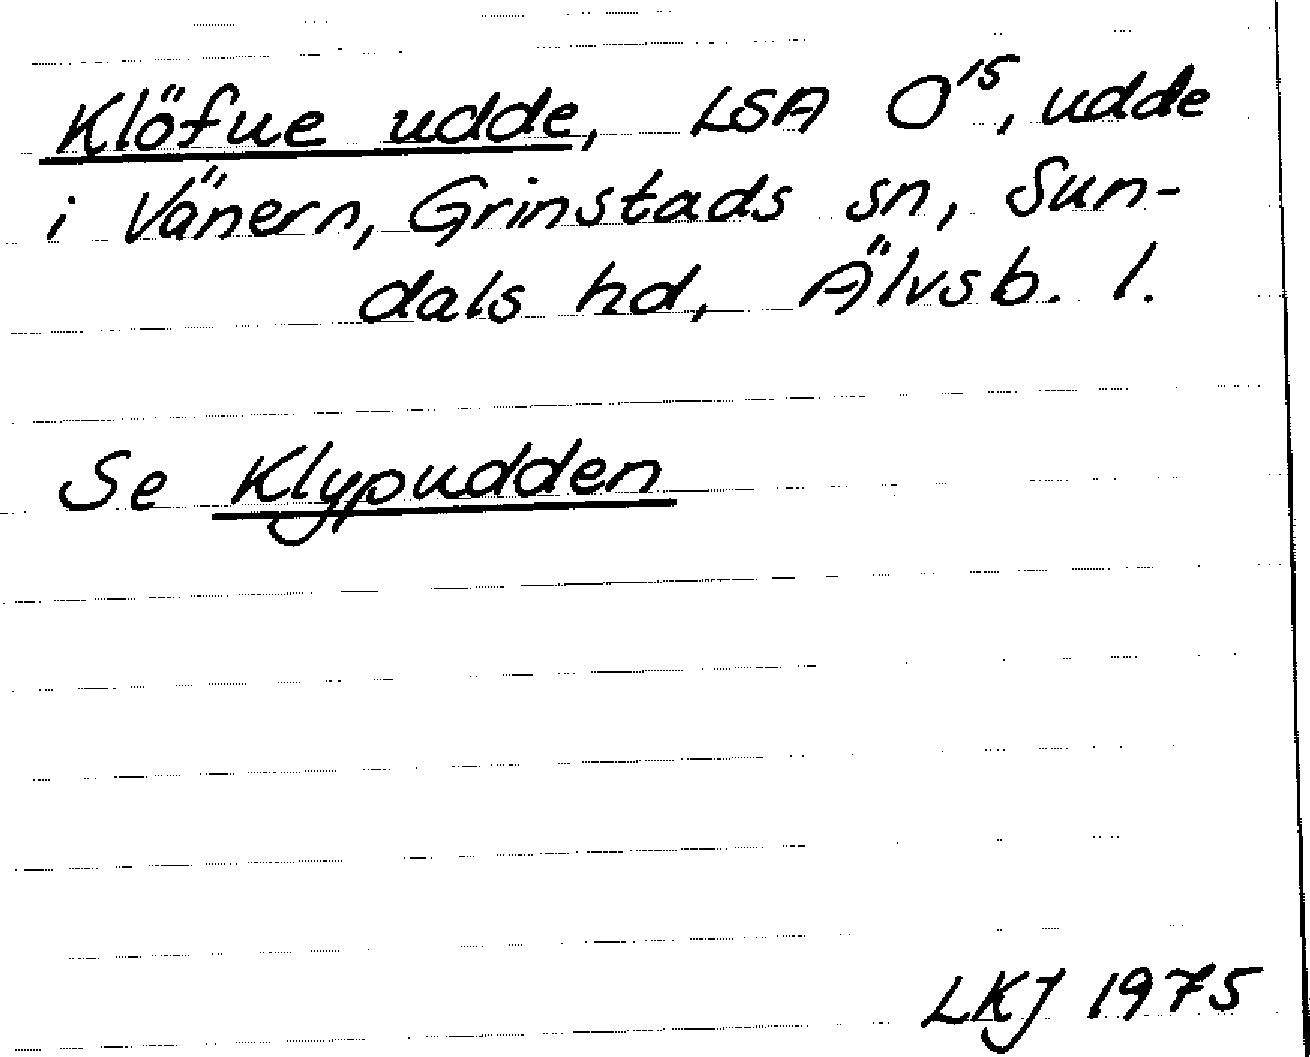 Klöfue udde, LSA O¹⁵, udde
i Vänern, Grinstads sn, Sun-
dals hd, Älvsb. l.
Se Klypudden
LKJ 1975